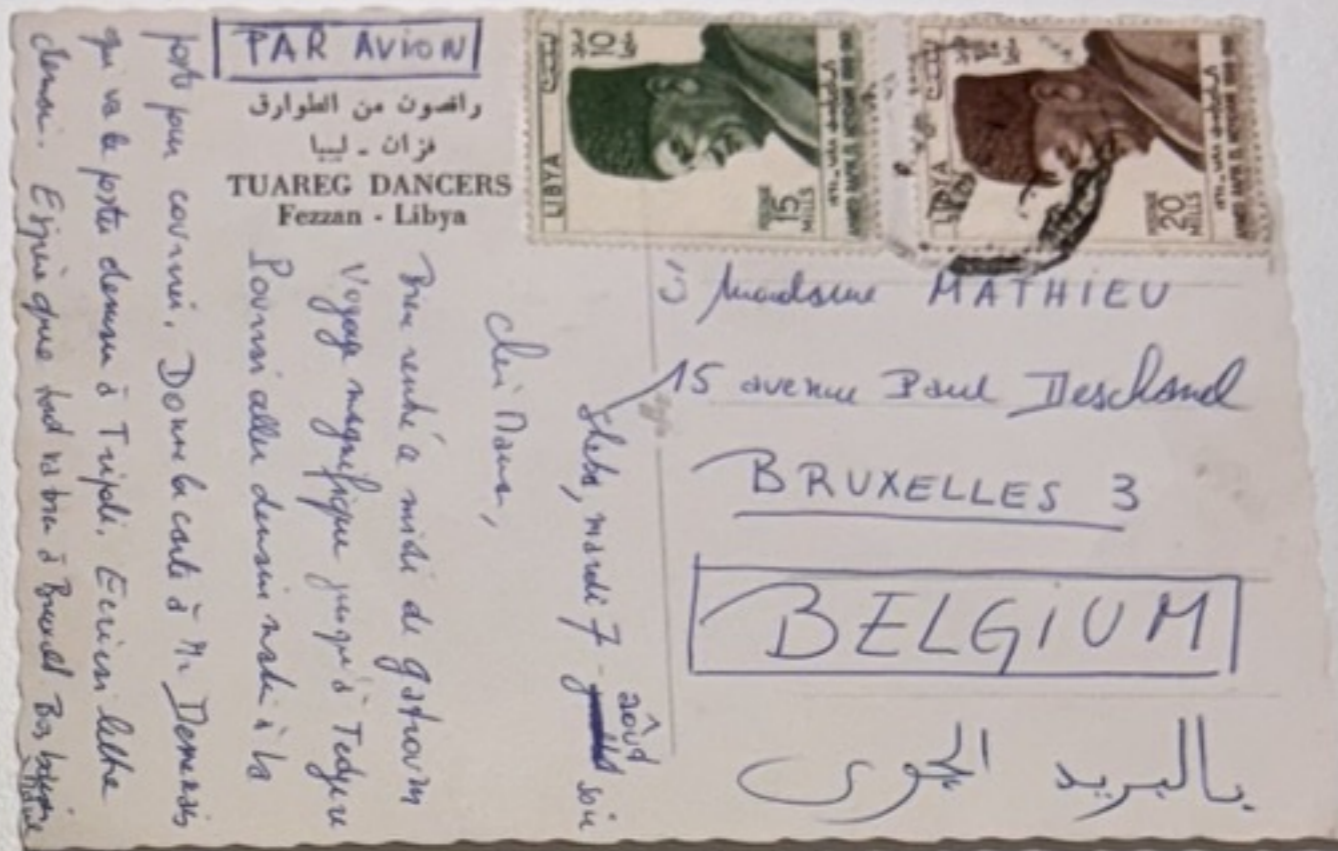 PAR AVION
راقصون من الطوارق
فزان - ليبيا
TUAREG DANCERS
Fezzan - Libya
LIBYA
15
MILLS
LIBYA
20
MILLS
Madame MATHIEU
15 avenue Paul Deschanel
BRUXELLES 3
BELGIUM
بالبريد الجوى
Sheba, mardi 7 août soir
Bien rentré à midi de gatroun
Voyage magnifique jusqu'à Tedjere
Pourrai aller demain matin à la
poste pour courrier. Donne la carte à Mr
qui va la poster demain à Tripoli. Ecrirai lettre
demain. Espère que tout va bien à